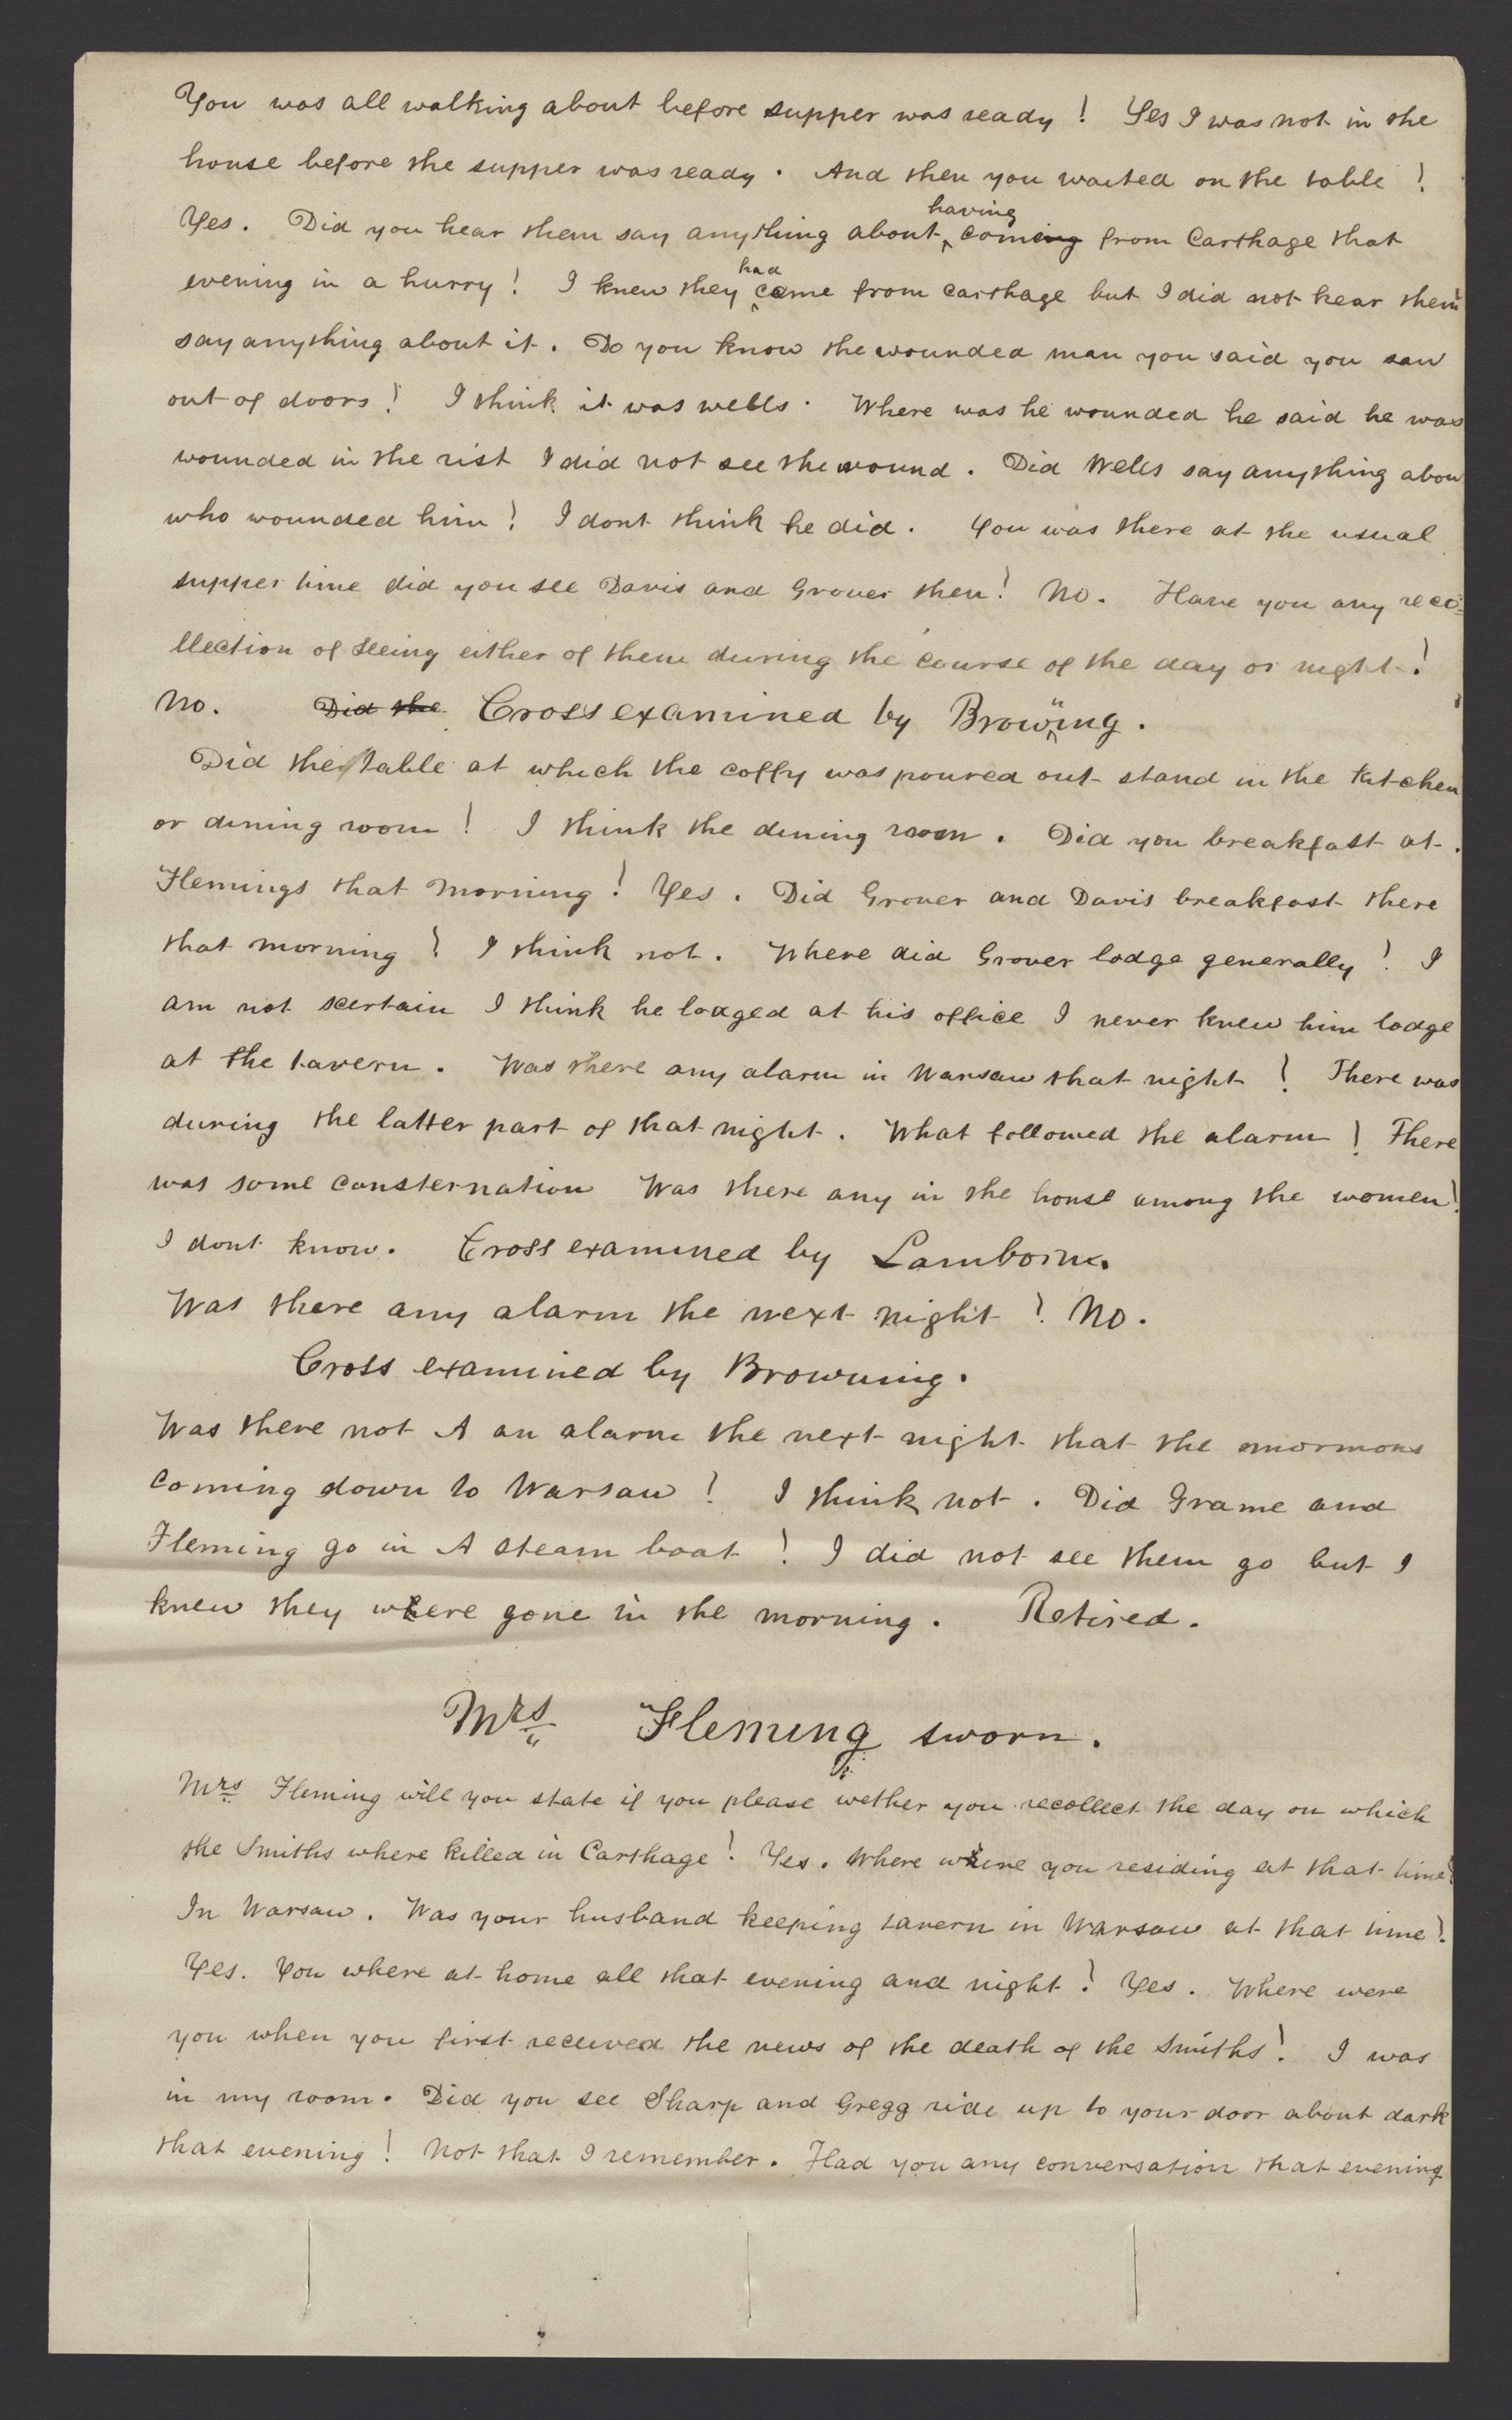 You was all walking about before supper was ready ! Yes I was not in the
house before the supper was ready . And then you waited on the table !
Yes . Did you hear them say anything about having coming from Carthage that
evening in a hurry ! I knew they had came from carthage but I did not hear them
say anything about it . Do you know the wounded man you said you saw
out of doors ! I think it was wells . Where was he wounded he said he was
wounded in the rist I did not see the wound . Did Wells say anything abou
who wounded him ! I dont think he did . You was there at the usual
supper time did you see Davis and Grover then ! No . Have you any reco=
llection of seeing either of them during the course of the day or night !
No . Did the Cross examined by Browning .
Did the table at which the coffy was poured out stand in the kitchen
or dining room ! I think the dining room . Did you breakfast at
Flemings that morning ! Yes . Did Grover and Davis breakfast there
that morning ! I think not . Where did Grover lodge generally ! I
am not scertain I think he lodged at his office I never knew him lodge
at the tavern . Was there any alarm in Warsaw that night ! There was
during the latter part of that night . What followed the alarm ! There
was some consternation Was there any in the house among the women !
I dont know . Cross examined by Lamborn .
Was there any alarm the next night ! No .
Cross examined by Browning .
Was there not A an alarm the next night that the mormons
coming down to Warsaw ! I think not . Did Grame and
Fleming go in A steam boat ! I did not see them go but I
knew they where gone in the morning . Retired .
Mrs Fleming sworn .
Mrs Fleming will you state if you please wether you recollect the day on which
the Smiths where killed in Carthage ! Yes . Where where you residing at that time !
In Warsaw . Was your husband keeping tavern in Warsaw at that time !
Yes . You where at home all that evening and night ! Yes . Where were
you when you first received the news of the death of the Smiths ! I was
in my room . Did you see Sharp and Gregg ride up to your door about dark
that evening ! Not that I remember . Had you any conversation that evening